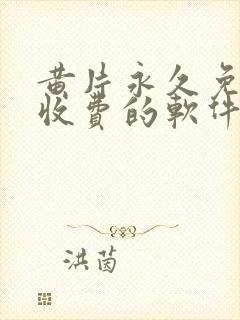 黄片永久免
收費的軟件
洪茵